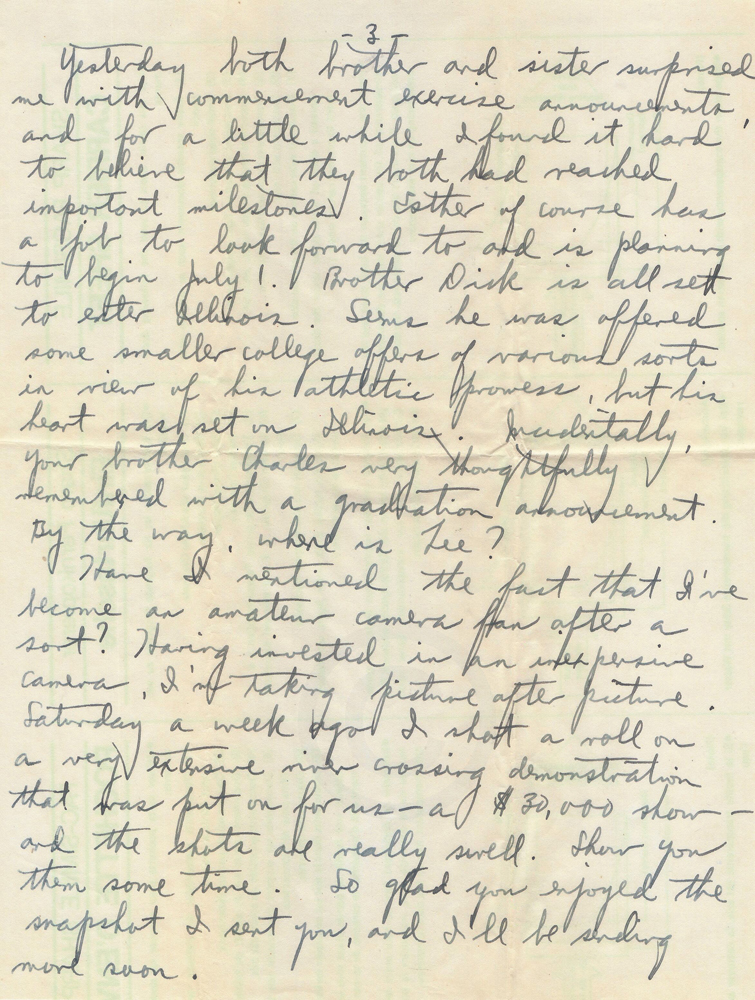 - 3 -
Yesterday both brother and sister surprised
me with commencement exercise announcements,
and for a little while I found it hard
to believe that they both had reached
important milestones. Esther of course has
a job to look forward to and is planning
to begin July 1. Brother Dick is all set
to enter Illinois. Seems he was offered
some smaller college offers of various sorts
in view of his athletic prowess, but his
heart was set on Illinois. Incidentally,
your brother Charles very thoughtfully
remembered with a graduation announcement.
By the way, where is Lee?
Have I mentioned the fact that I've
become an amateur camera fan after a
sort? Having invested in an inexpensive
camera, I'm taking picture after picture.
Saturday a week ago I shot a roll on
a very extensive river crossing demonstration
that was put on for us — a $30,000 show —
and the shots are really swell. Show you
them some time. So glad you enjoyed the
snapshot I sent you, and I'll be sending
more soon.